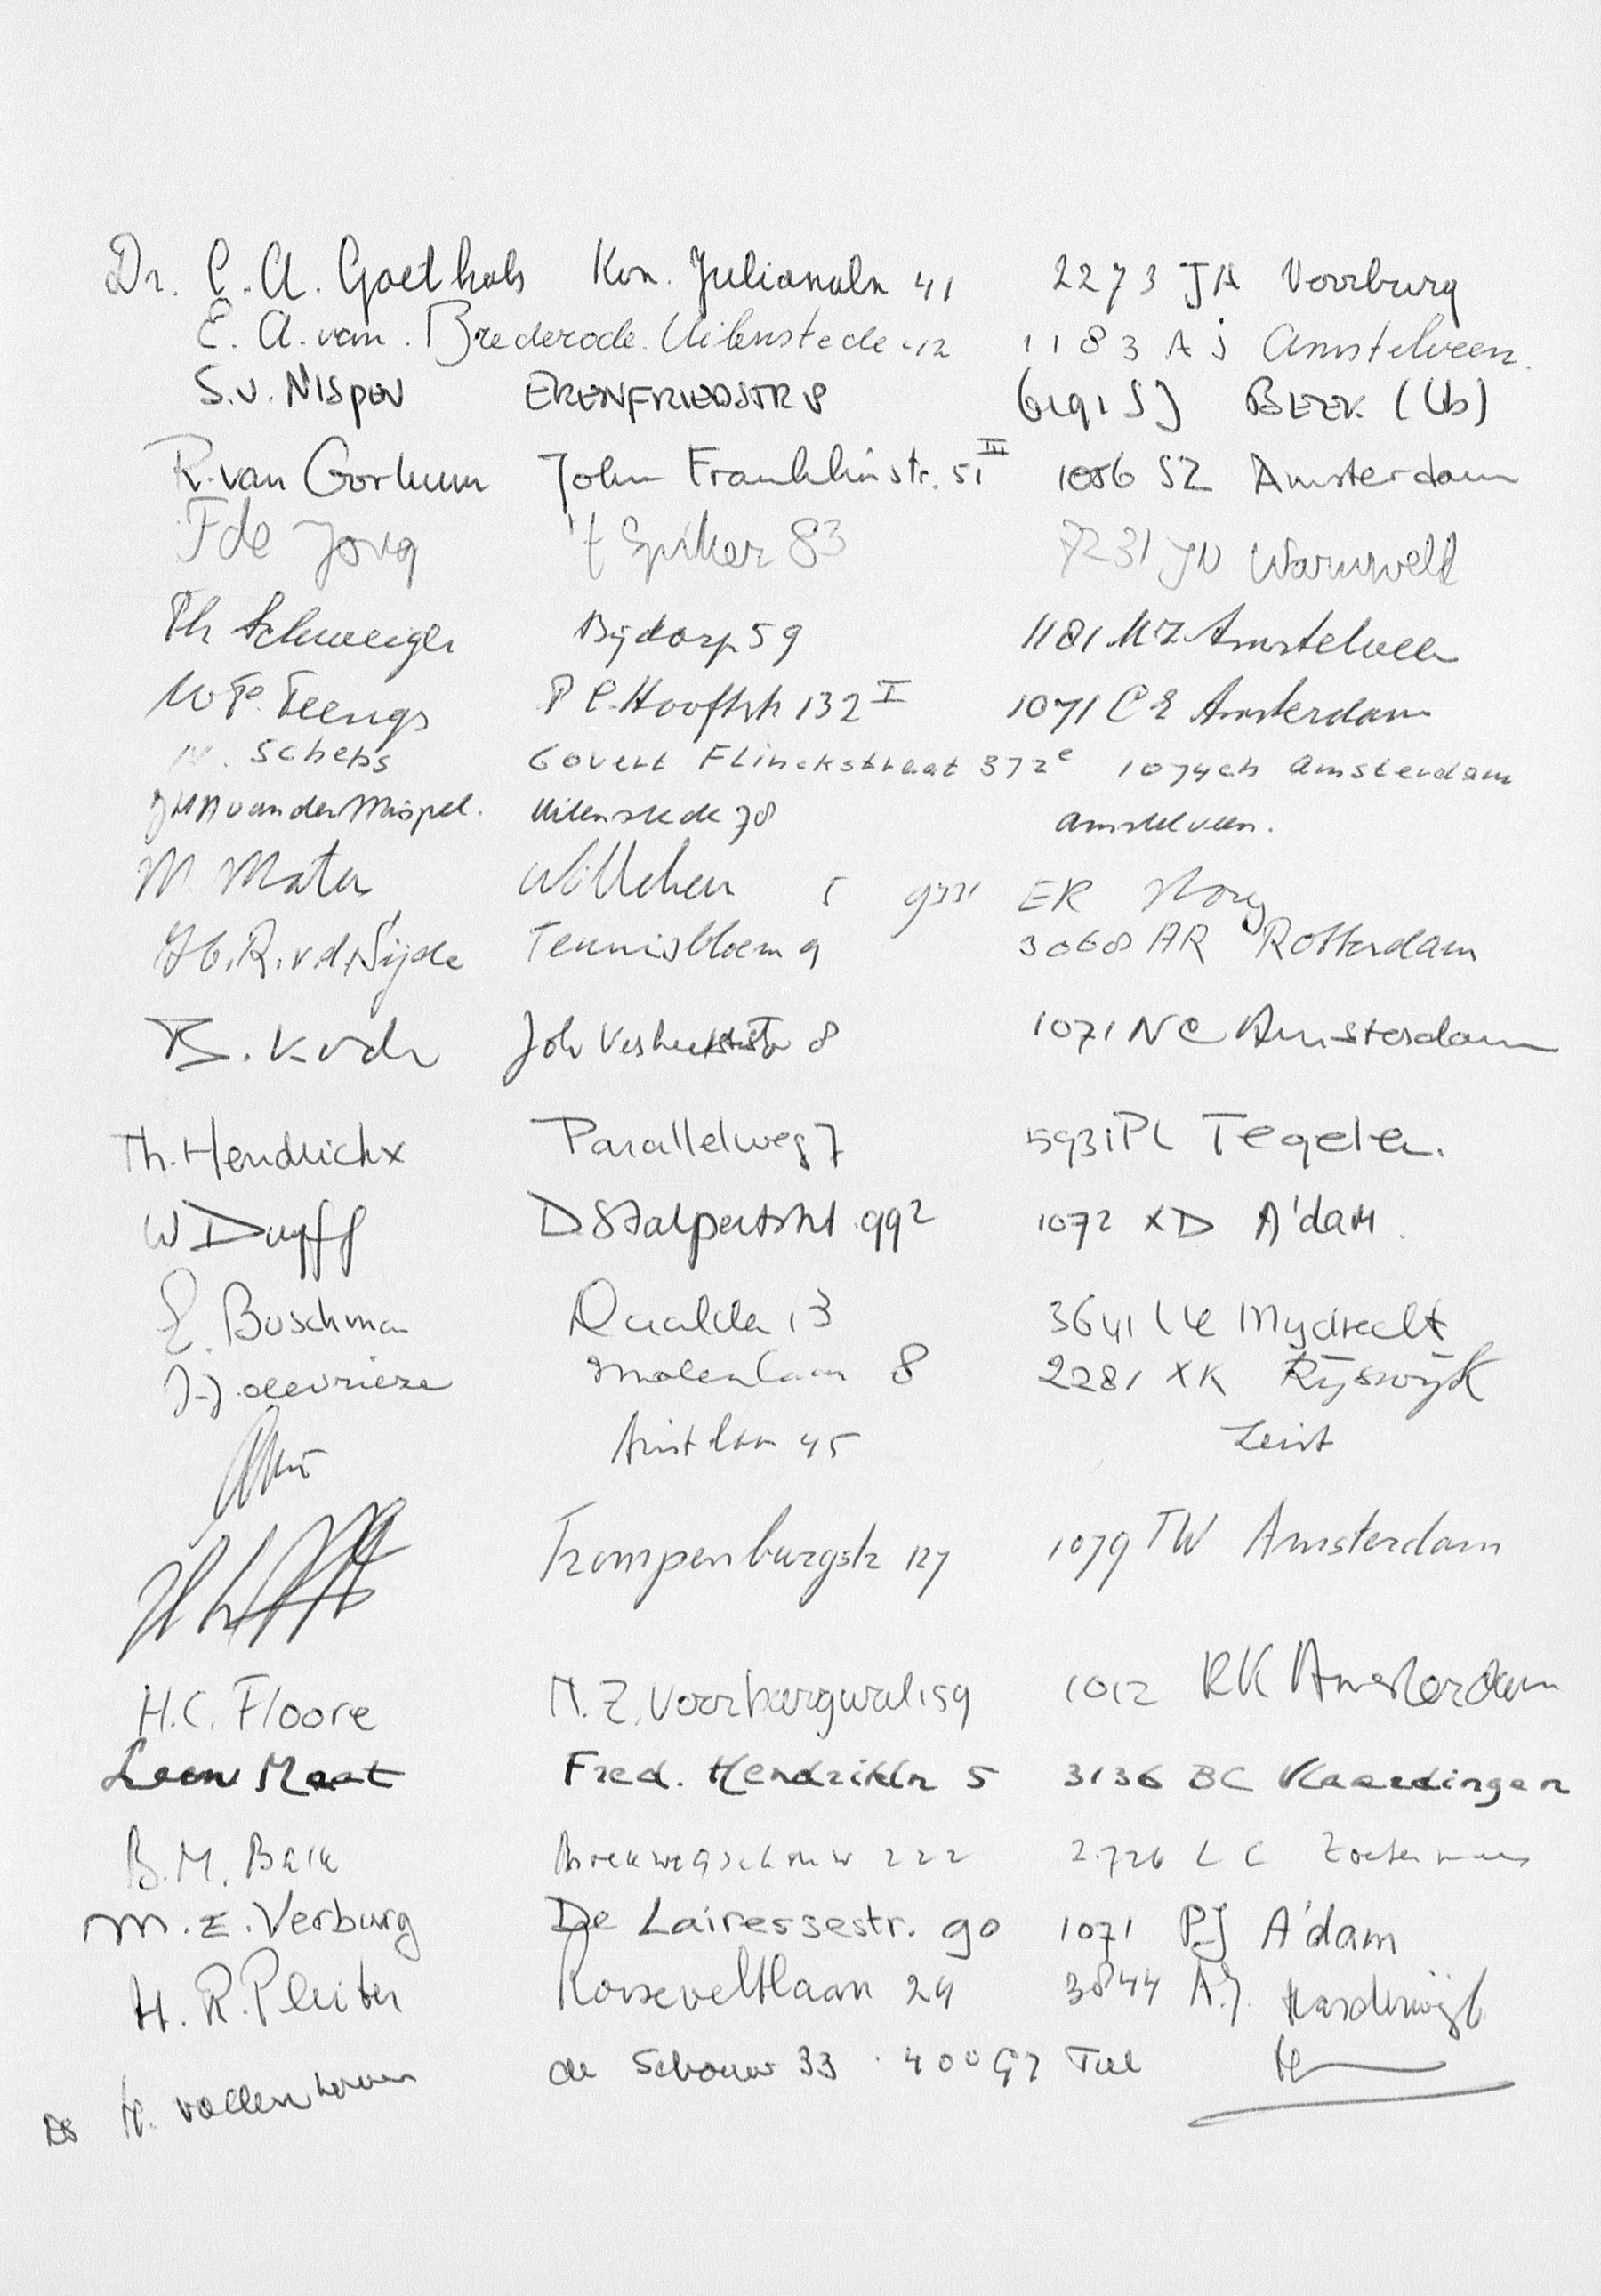 Dr. C. A. Goethals Kon. Julianaln 41 2273 JA Voorburg
E. A. van Brederode Uilenstede 12 1183 AJ Amstelveen.
S. v. NISpen ERENFRIEDSTR 8 6191 SJ BEEK (Lb)
R. van Gorkum John Franklinstr. 51 III 1056 SZ Amsterdam
F de Jong 't Spiker 83 7231 JN Warnsveld
Th Schweigle Bijdorp 59 1181 MZ Amstelveen
W. F. Teengs P C Hooftstr 132 I 1071 CE Amsterdam
Scheps Govert Flinckstraat 372 e 1074 ch Amsterdam
van der Mispel. Uilenstede 78 Amstelveen.
M. Mater 5 9331 ER Norg
R. v. d. Sijde Tennisbloem 9 3068 AR Rotterdam
B. Koch Joh Verhulststr 8 1071 NC Amsterdam
Th. Hendrickx Parallelweg 7 5931 PL Tegelen.
W Duyff D Stalpertstr 99 2 1072 XD A'dam.
E. Boschma 13 3641 Mydrecht
J. J. de Vrieze Molenlaan 8 2281 XK Rijswijk
laan 45 Zeist
Trompenburgstr 127 1079 TW Amsterdam
H. C. Floore N. Z. Voorburgwal 159 1012 RK Amsterdam
Leen Maat Fred. Hendrikln 5 3136 BC Vlaardingen
B. M. 222 2726 LC Zoetermeer
M. E. Verburg De Lairessestr. 90 1071 PJ A'dam
H. R. Pleiter Rooseveltlaan 24 3844 A.J. Harderwijk
Ds H. Vollenhoven de Schouw 33 Tiel